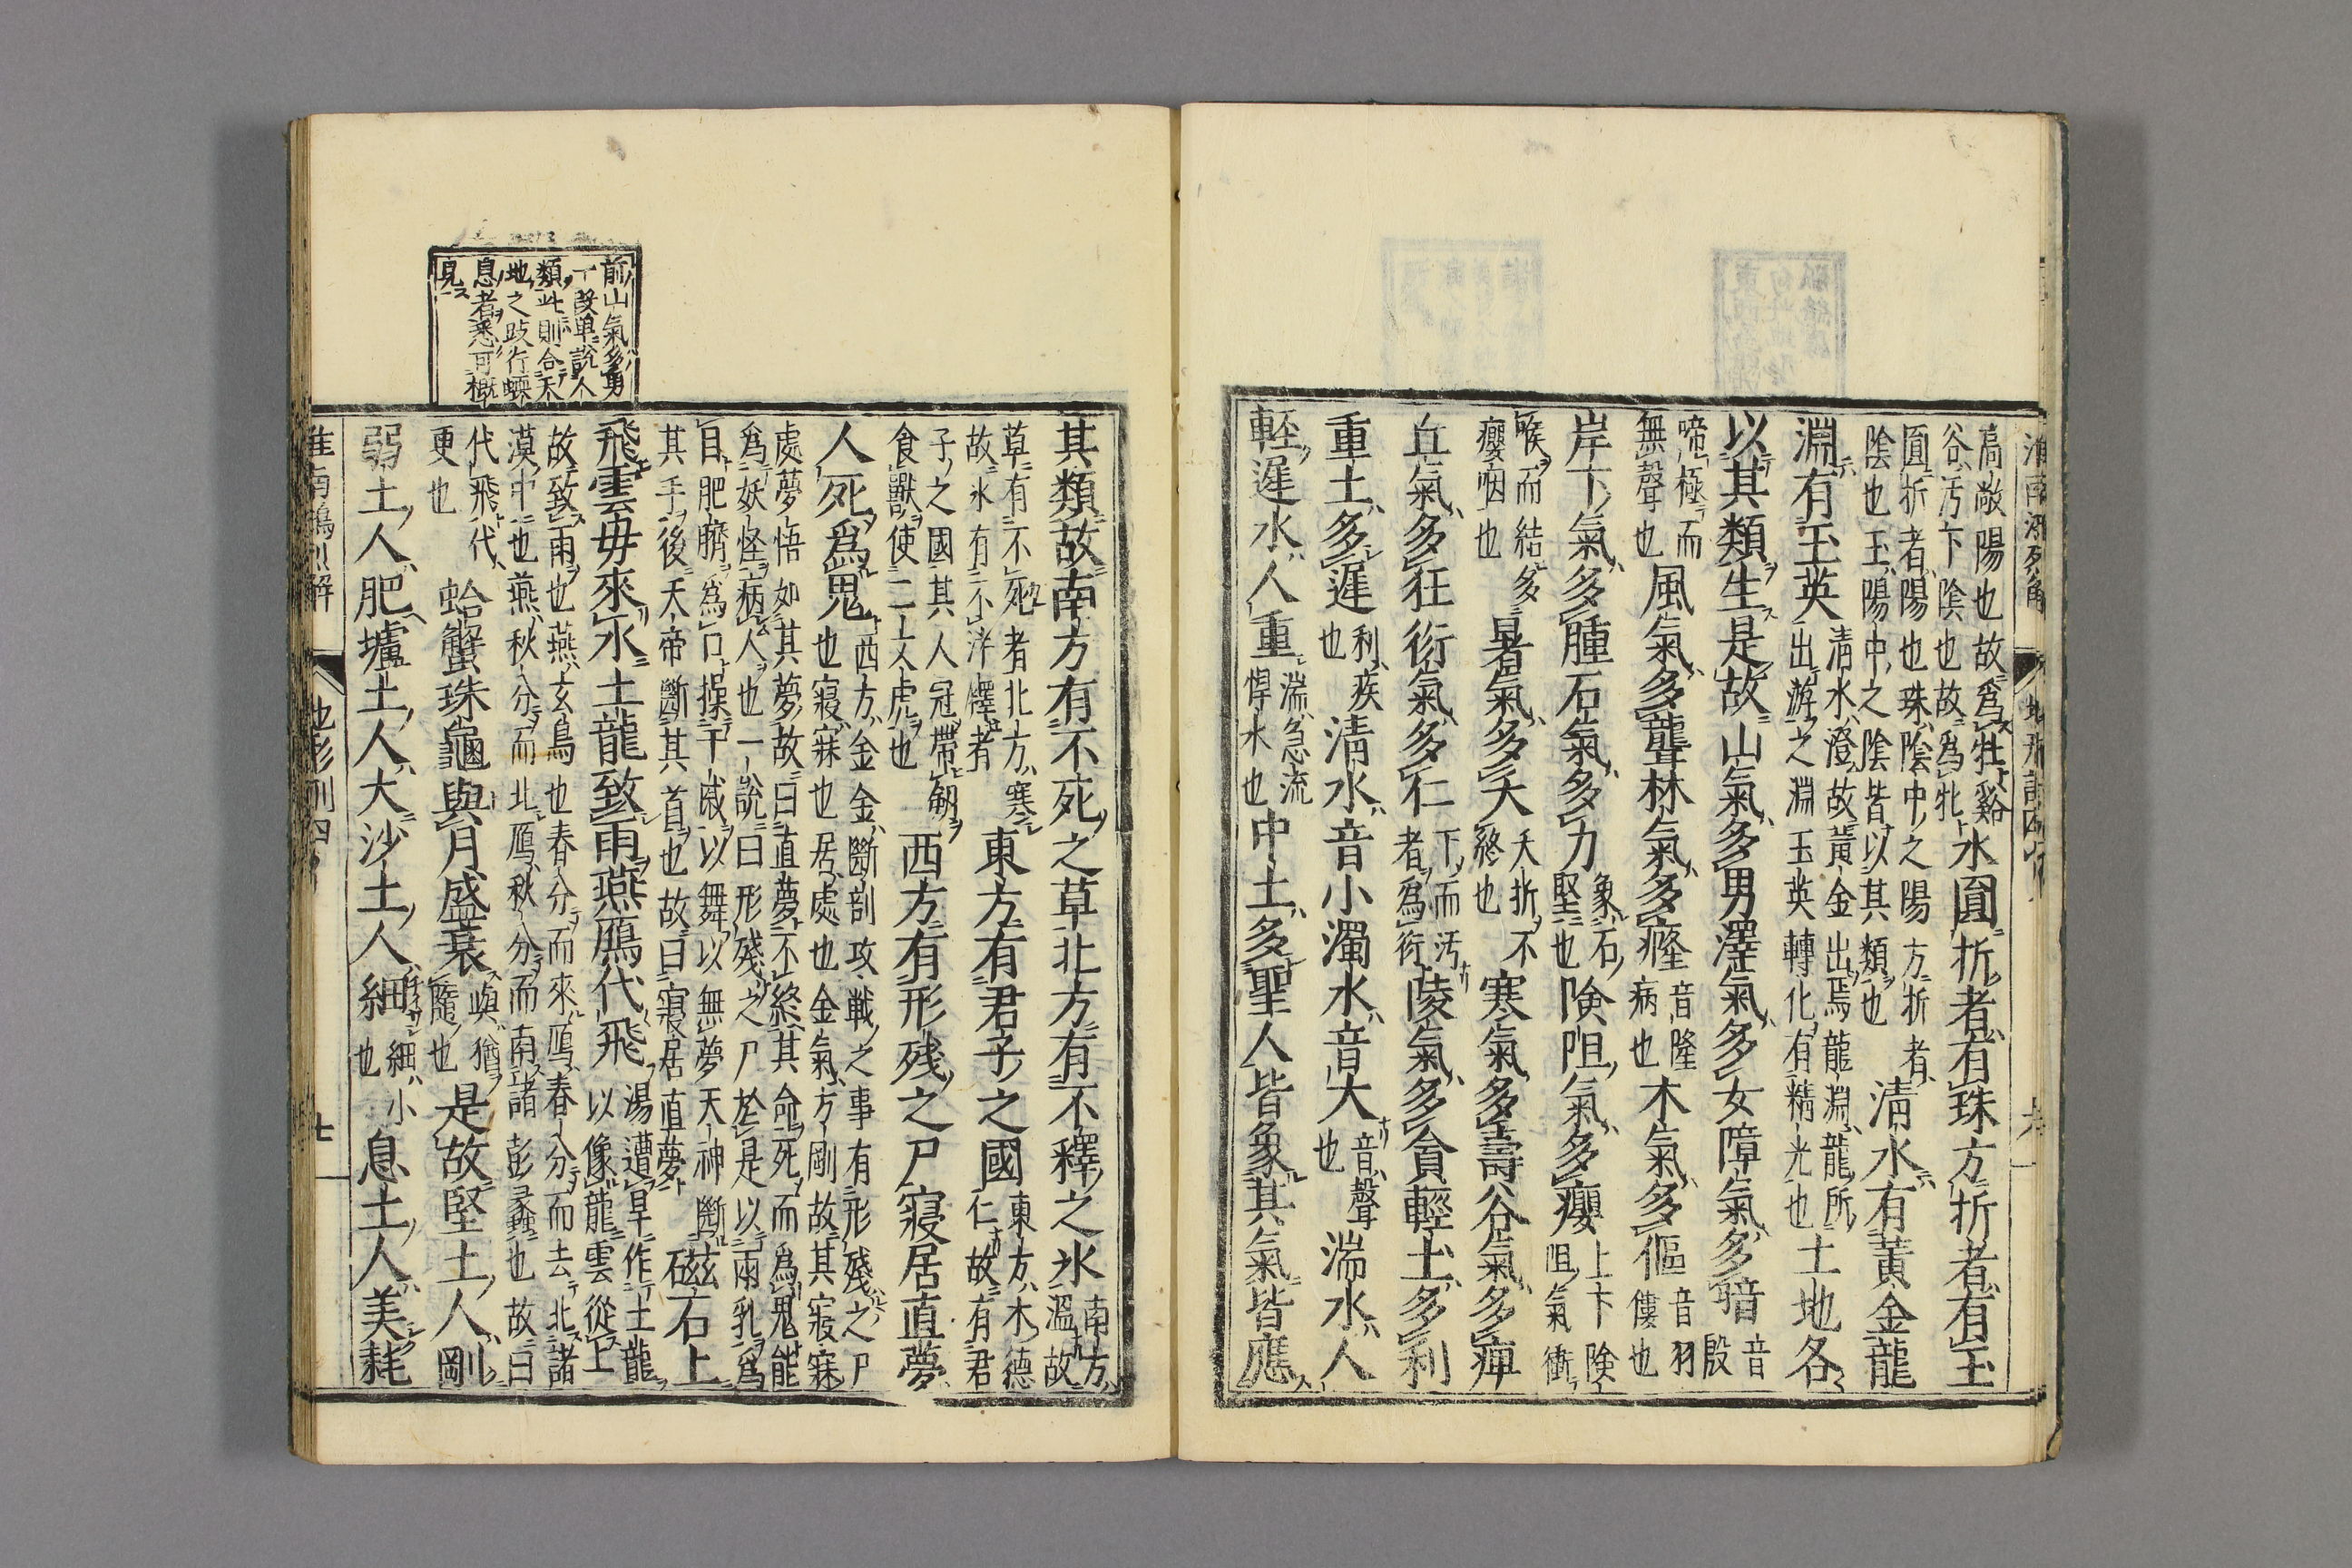 高敞陽也故爲牡谿
谷汚下陰也故為牝
水圓折者有珠方折者有玉
圓折者陽也珠陰中之陽方折者
陰也玉陽中之陰皆以其類也
清水有黃金龍
淵有玉英
清水澄故黃金出焉龍淵龍所
出游之淵玉英轉化有精光也
土地各
以其類生是故山氣多男澤氣多女障氣多暗
音殷
啼極而
無聲也
風氣多聾林氣多癃
音隆
病也
木氣多傴
音羽
僂也
岸下氣多腫石氣多力
象石
堅也
険阻氣多癭
上下険
阻氣衝
喉而結多
癭咽也
暑氣多夭
夭折不
終也
寒氣多壽谷氣多痺
丘氣多狂衍氣多仁
下而汚
者為衍
陵氣多貪輕土多利
重土多遲
利疾
也
清水音小濁水音大
音聲
也
湍水人
輕遲水人重
湍急流
悍水也
中土多聖人皆象其氣皆應
前山氣多男
一段単說人
類此則合天
地之跂行喙
息者悉可概
見
其類故南方有不死之草北方有不釋之氷
南方
溫故
草有不死者北方寒
故氷有不泮釋者
東方有君子之國
東方木德
仁故有君
子之國其人冠帶劔
食獸使二文虎也
西方有形残之尸寢居直夢
人死爲鬼
西方金金斷割攻戰之事有形殘之尸
也寢寐也居處也金氣方剛故其寢寐
處夢悟如其夢故曰直夢不終其命死而爲鬼能
爲妖怪病人也一說曰形殘之尸於是以兩乳爲
目肥臍爲口操干戚以舞以無夢天神斷
其手後天帝斷其首也故曰寢居直夢
磁石上
飛雲毋來氷土龍致雨燕鴈代飛
湯遭旱作土龍
以像龍雲從上
故致雨也燕玄鳥也春分而來鴈春分而去北諸
漠中也燕秋分而北鴈秋分而南諸彭蠡也故曰
代飛代
更也
蛤蟹珠龜與月盛衰
與猶
隨也
是故堅土人剛
弱土人肥壚土人大沙土人細
細小
也
息土人美耗
七